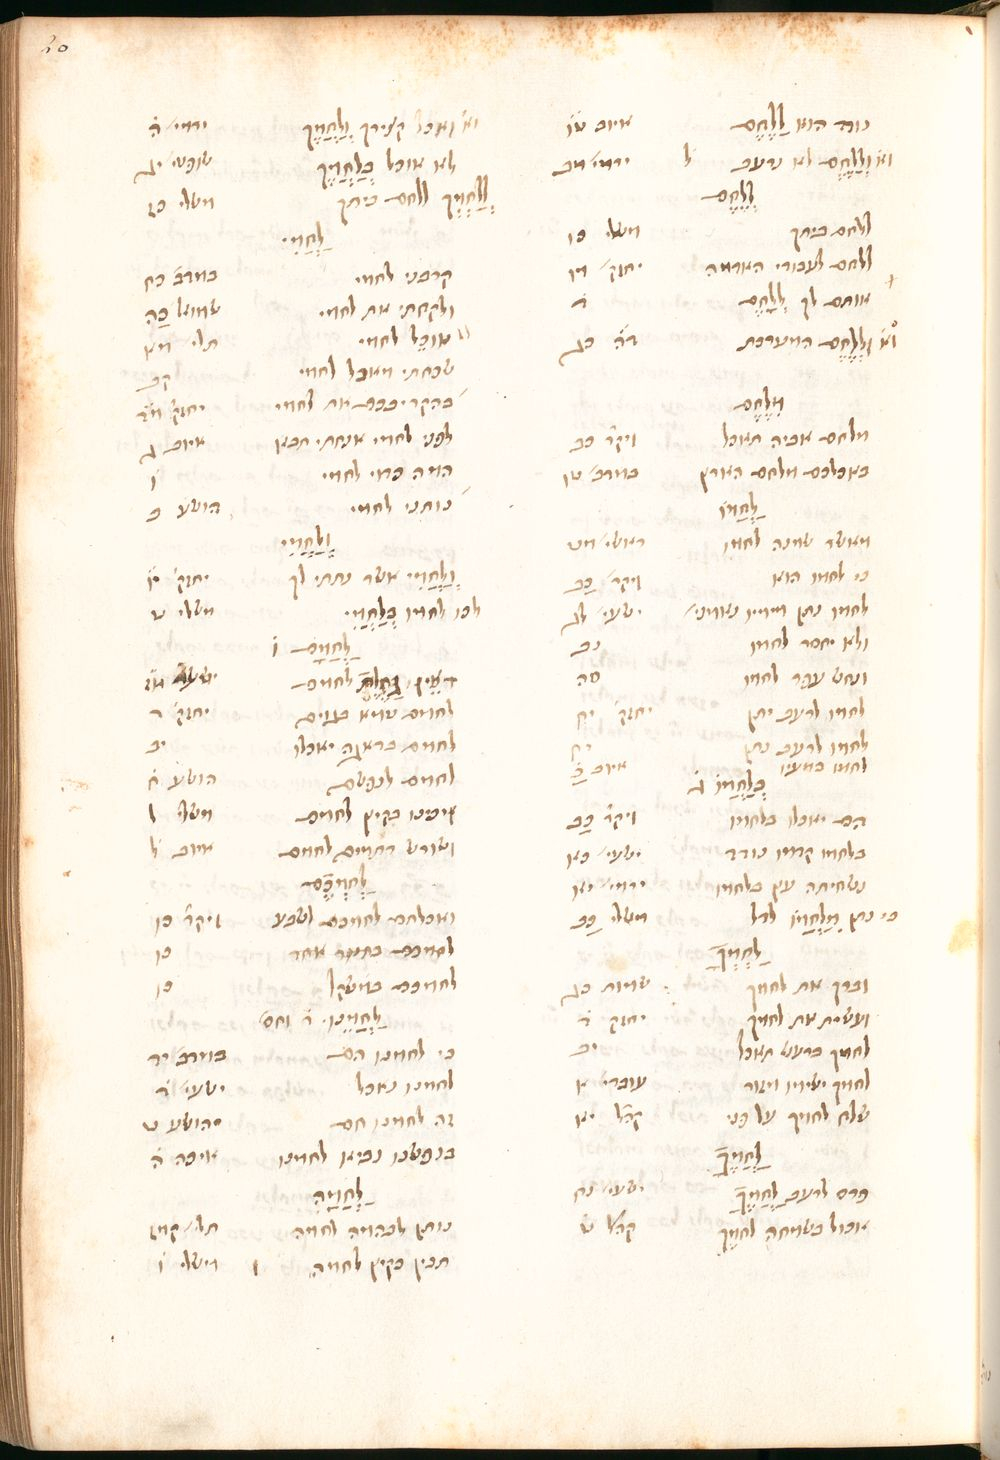 20
נודד הוא לַלֶּחֶם איוב טו
וא וְלַלֶּחֶם לא נרעב ל ירמי׳ מב
לְלֶחֶם
ללחם ביתך משלי כז
ללחם לעבודי האדמה
אותם לך לְלֶחֶם ד
וא וּלְלֶחֶם המערכת דה כג
מִלֶּחֶם
מלחם אביה תאכל ויקר׳ כב
באכלכם מלחם הארץ במדב׳ טו
לַחְמוֹ
מאשר שמנה לחמו בראשי׳ מט
כי לחמו הוא ויקר׳ כב
לחמו נתן מימיו נאמני׳ ישעי׳ לג
ולא יחסר לחמו נב
ונחש עפר לחמו סה
לחמו לרעב יתן יחזק׳ יח
לחמו לרעב נתן יח
לחמו במעיו איוב כ
בְּלַחְמוֹ ג
הם יאכלו בלחמו ויקר׳ כב
בלחמו קדמו נודד ישעי׳ כא
נשחיתה עץ בלחמו ירמי׳ יא
כי נתן מִלַּחְמוֹ לדל משלי כב
לַחְמְךָ
וברך את לחמך שמות כג
ועשית את לחמך יחזק׳ ד
לחמך ברעש תאכל יב
לחמך ישימו מזור עובדי׳ א
שלח לחמך על פני קהל׳ יא
לַחְמֶךָ
פרס לרעב לַחְמֶךָ ישעי׳ נח
אכול בשמחה לחמך קהל׳ ט
וא ואכל קצירך וְלַחְמֶךָ ירמי׳ ה
לא אוכל בְּלַחְמֶךָ שופטי׳ יג
לְלַחְמְךָ ללחם ביתך משלי כז
לַחְמִי
קרבני לחמי במדב׳ כח
ולקחתי את לחמי שמוא׳ כה
אוכל לחמי תלי׳ מא
שכחתי מאכל לחמי קב
בהקריבכם את לחמי יחזק׳ מד
לפני לחמי אנחתי תבא איוב ג
המה כדוי לחמי ו
נותני לחמי הושע ב
וְלַחְמִי
וְלַחְמִי אשר נתתי לך יחזק׳ יו
לכו לחמו בְּלַחְמִי משלי ט
לַחְמָם ו
לחמם
לחמם טמא בגוים יחזק׳ ד
לחמם בדאגה יאכלו יב
לחמם לנפשם הושע ח
ויכינו בקיץ לחמם משלי ל
ושורש רתמים לחמם איוב ל
לַחְמְכֶם
ואכלתם לחמכם לשבע ויקר׳ כו
לחמכם בתנור אחד כו
לחמכם במשקל כו
לַחְמֵנוּ ד וחס׳
כי לחמנו הם במדב׳ יד
לחמנו נאכל ישעי׳ ד
זה לחמנו חם יהושע ט
בנפשנו נביא לחמנו איכה ה
לַחְמָהּ
נותן לבהמה לחמה תלי׳ קמז
תכין בקיץ לחמה משלי ו